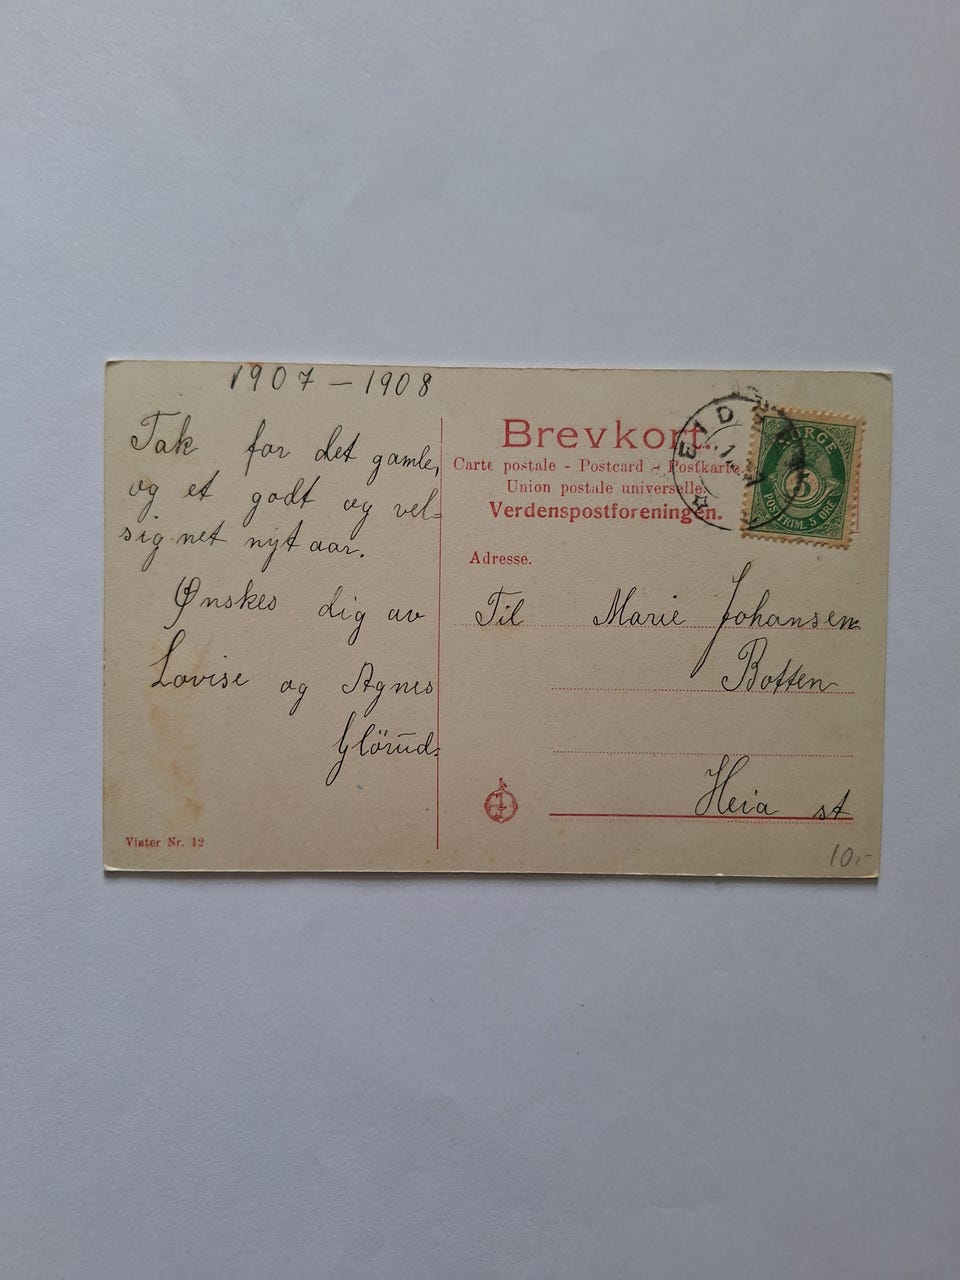 1907 – 1908
Tak for det gamle,
og et godt og vel=
sig net nyt aar.
Ønskes dig av
Lovise og Agnes
Glörud.
Vinter Nr. 12
Brevkort.
Carte postale - Postcard - Postkarte.
Union postale universelle.
Verdenspostforeningen.
Adresse.
Til Marie Johansen
Botten
Heia st
10.-
EID
NORGE
5
POSTFRIM. 5 ØRE